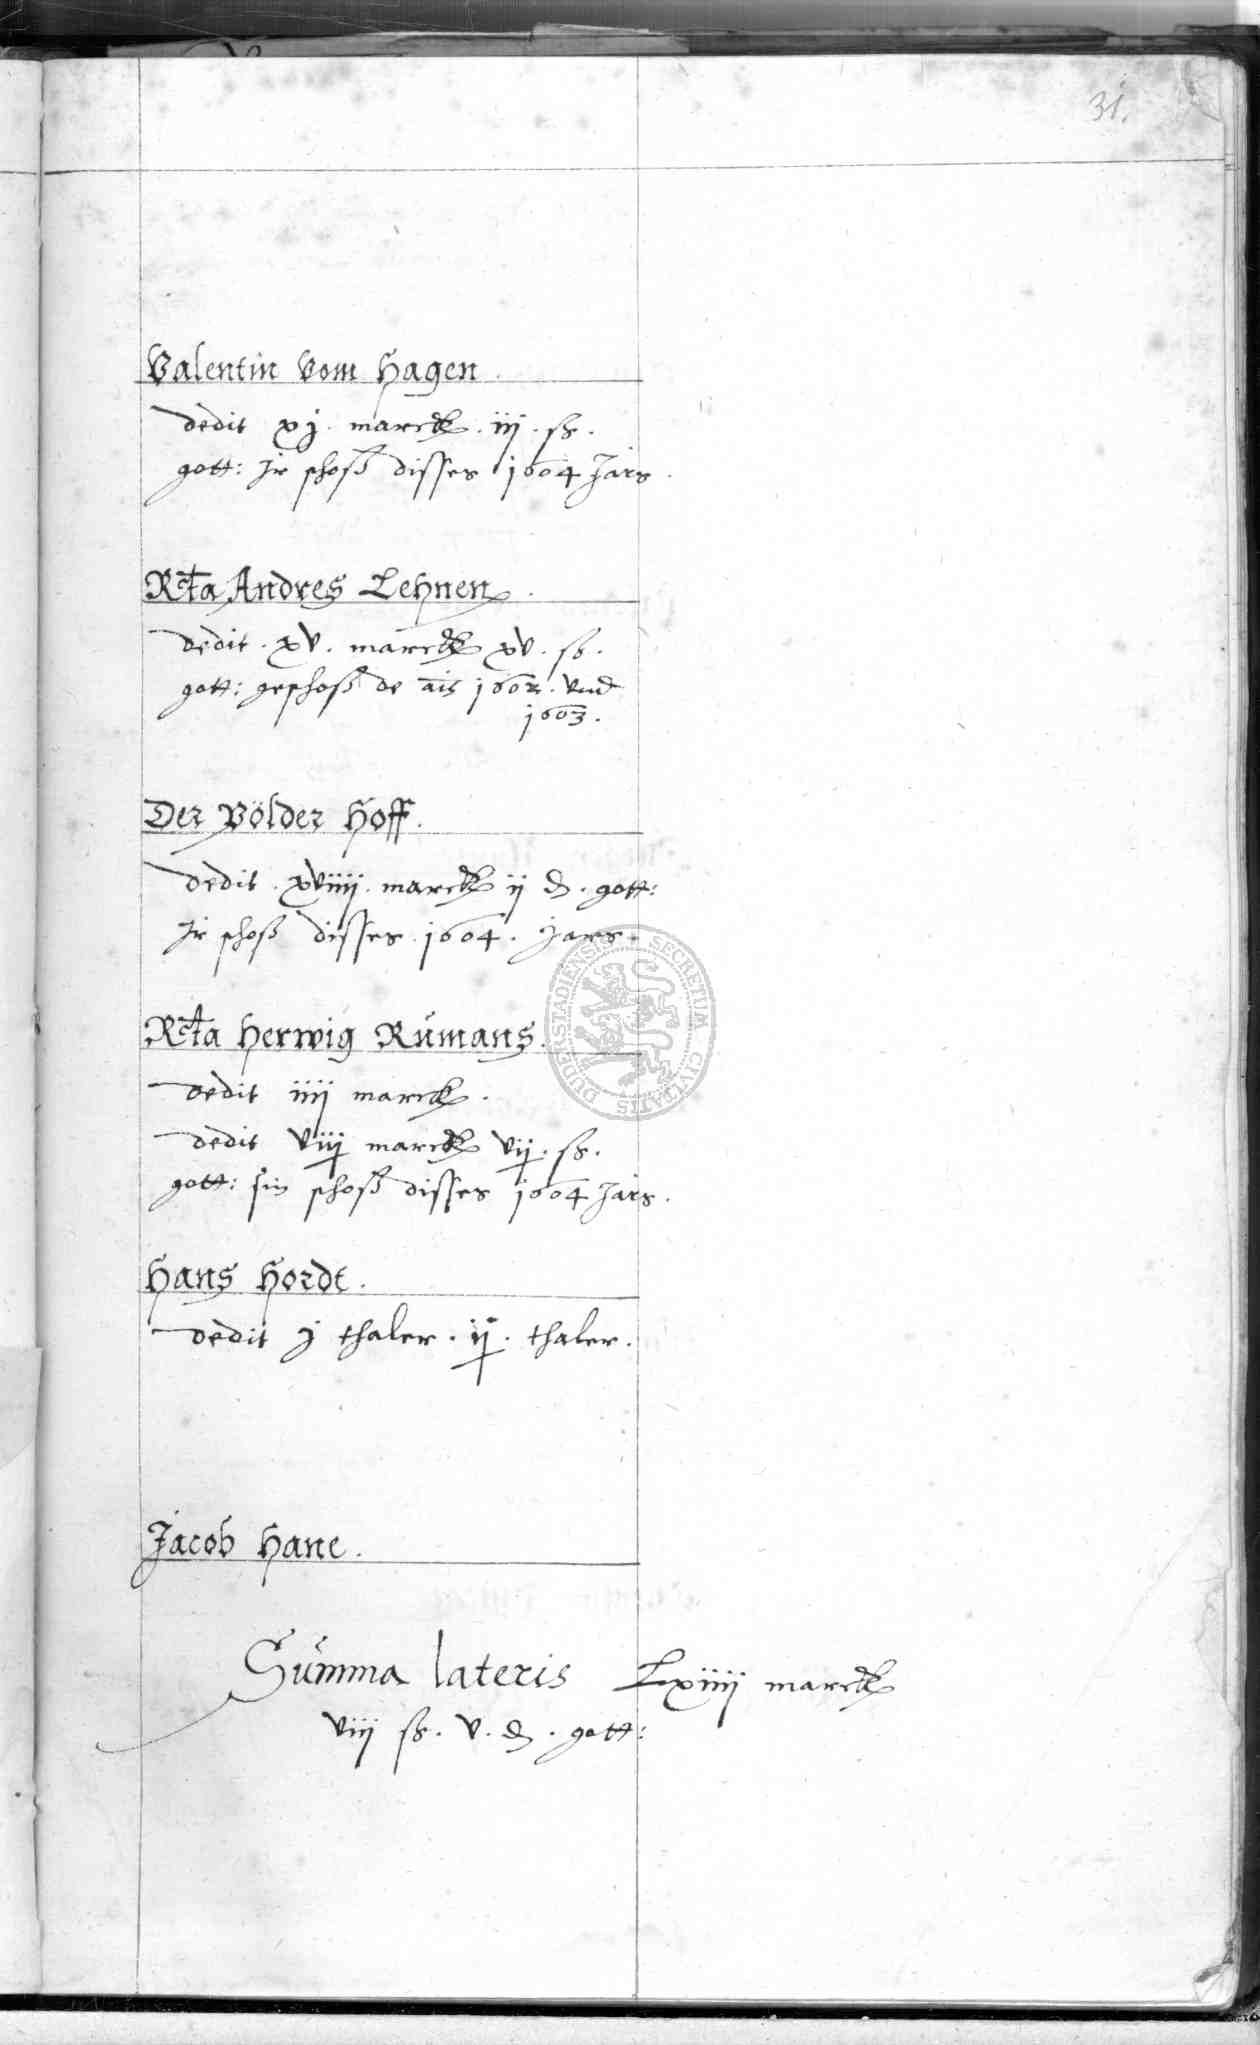 31.
Valentin vom Hagen.
dedit xj. marck. iij. ß.
gott: Ir schoß disses 1604 Jars.
Rcta Andres Lehnen.
dedit. xv. marck xv. ß.
gott: geschoß de ais 1602. vnd
1603.
Der Pölder Hoff.
dedit. xviiij. marck ij d. gott:
Ir schoß disses. 1604. Jars.
Rcta Herwig Rumans.
dedit iiij marck.
dedit viij marck vij. ß.
gott: sin schoß disses 1604 Jars.
Hans Hordt.
dedit j thaler. ij. thaler.
Jacob Hane.
Summa lateris Lxiiij marck
viij ß. v. d. gott:
SECRETUM CIVITATIS DUDERSTADIENSIS